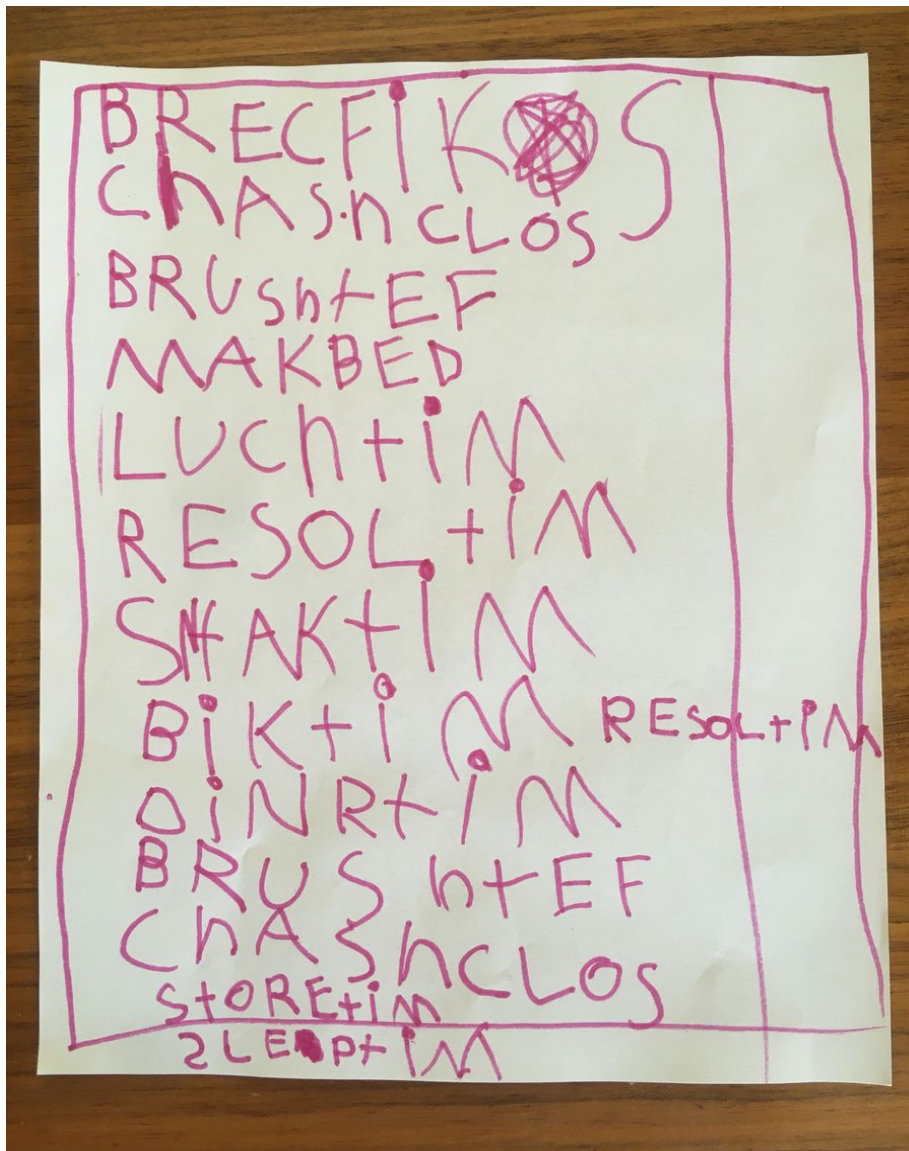 BRECFiK S
ChAShCLOS
BRUShtEF
MAKBED
LUChtiM
RESOLtiM
SNAKtiM
BiKtiM RESOLtiM
DiNRtiM
BRUShtEF
ChAShCLOS
StOREtiM
SLEPtiM